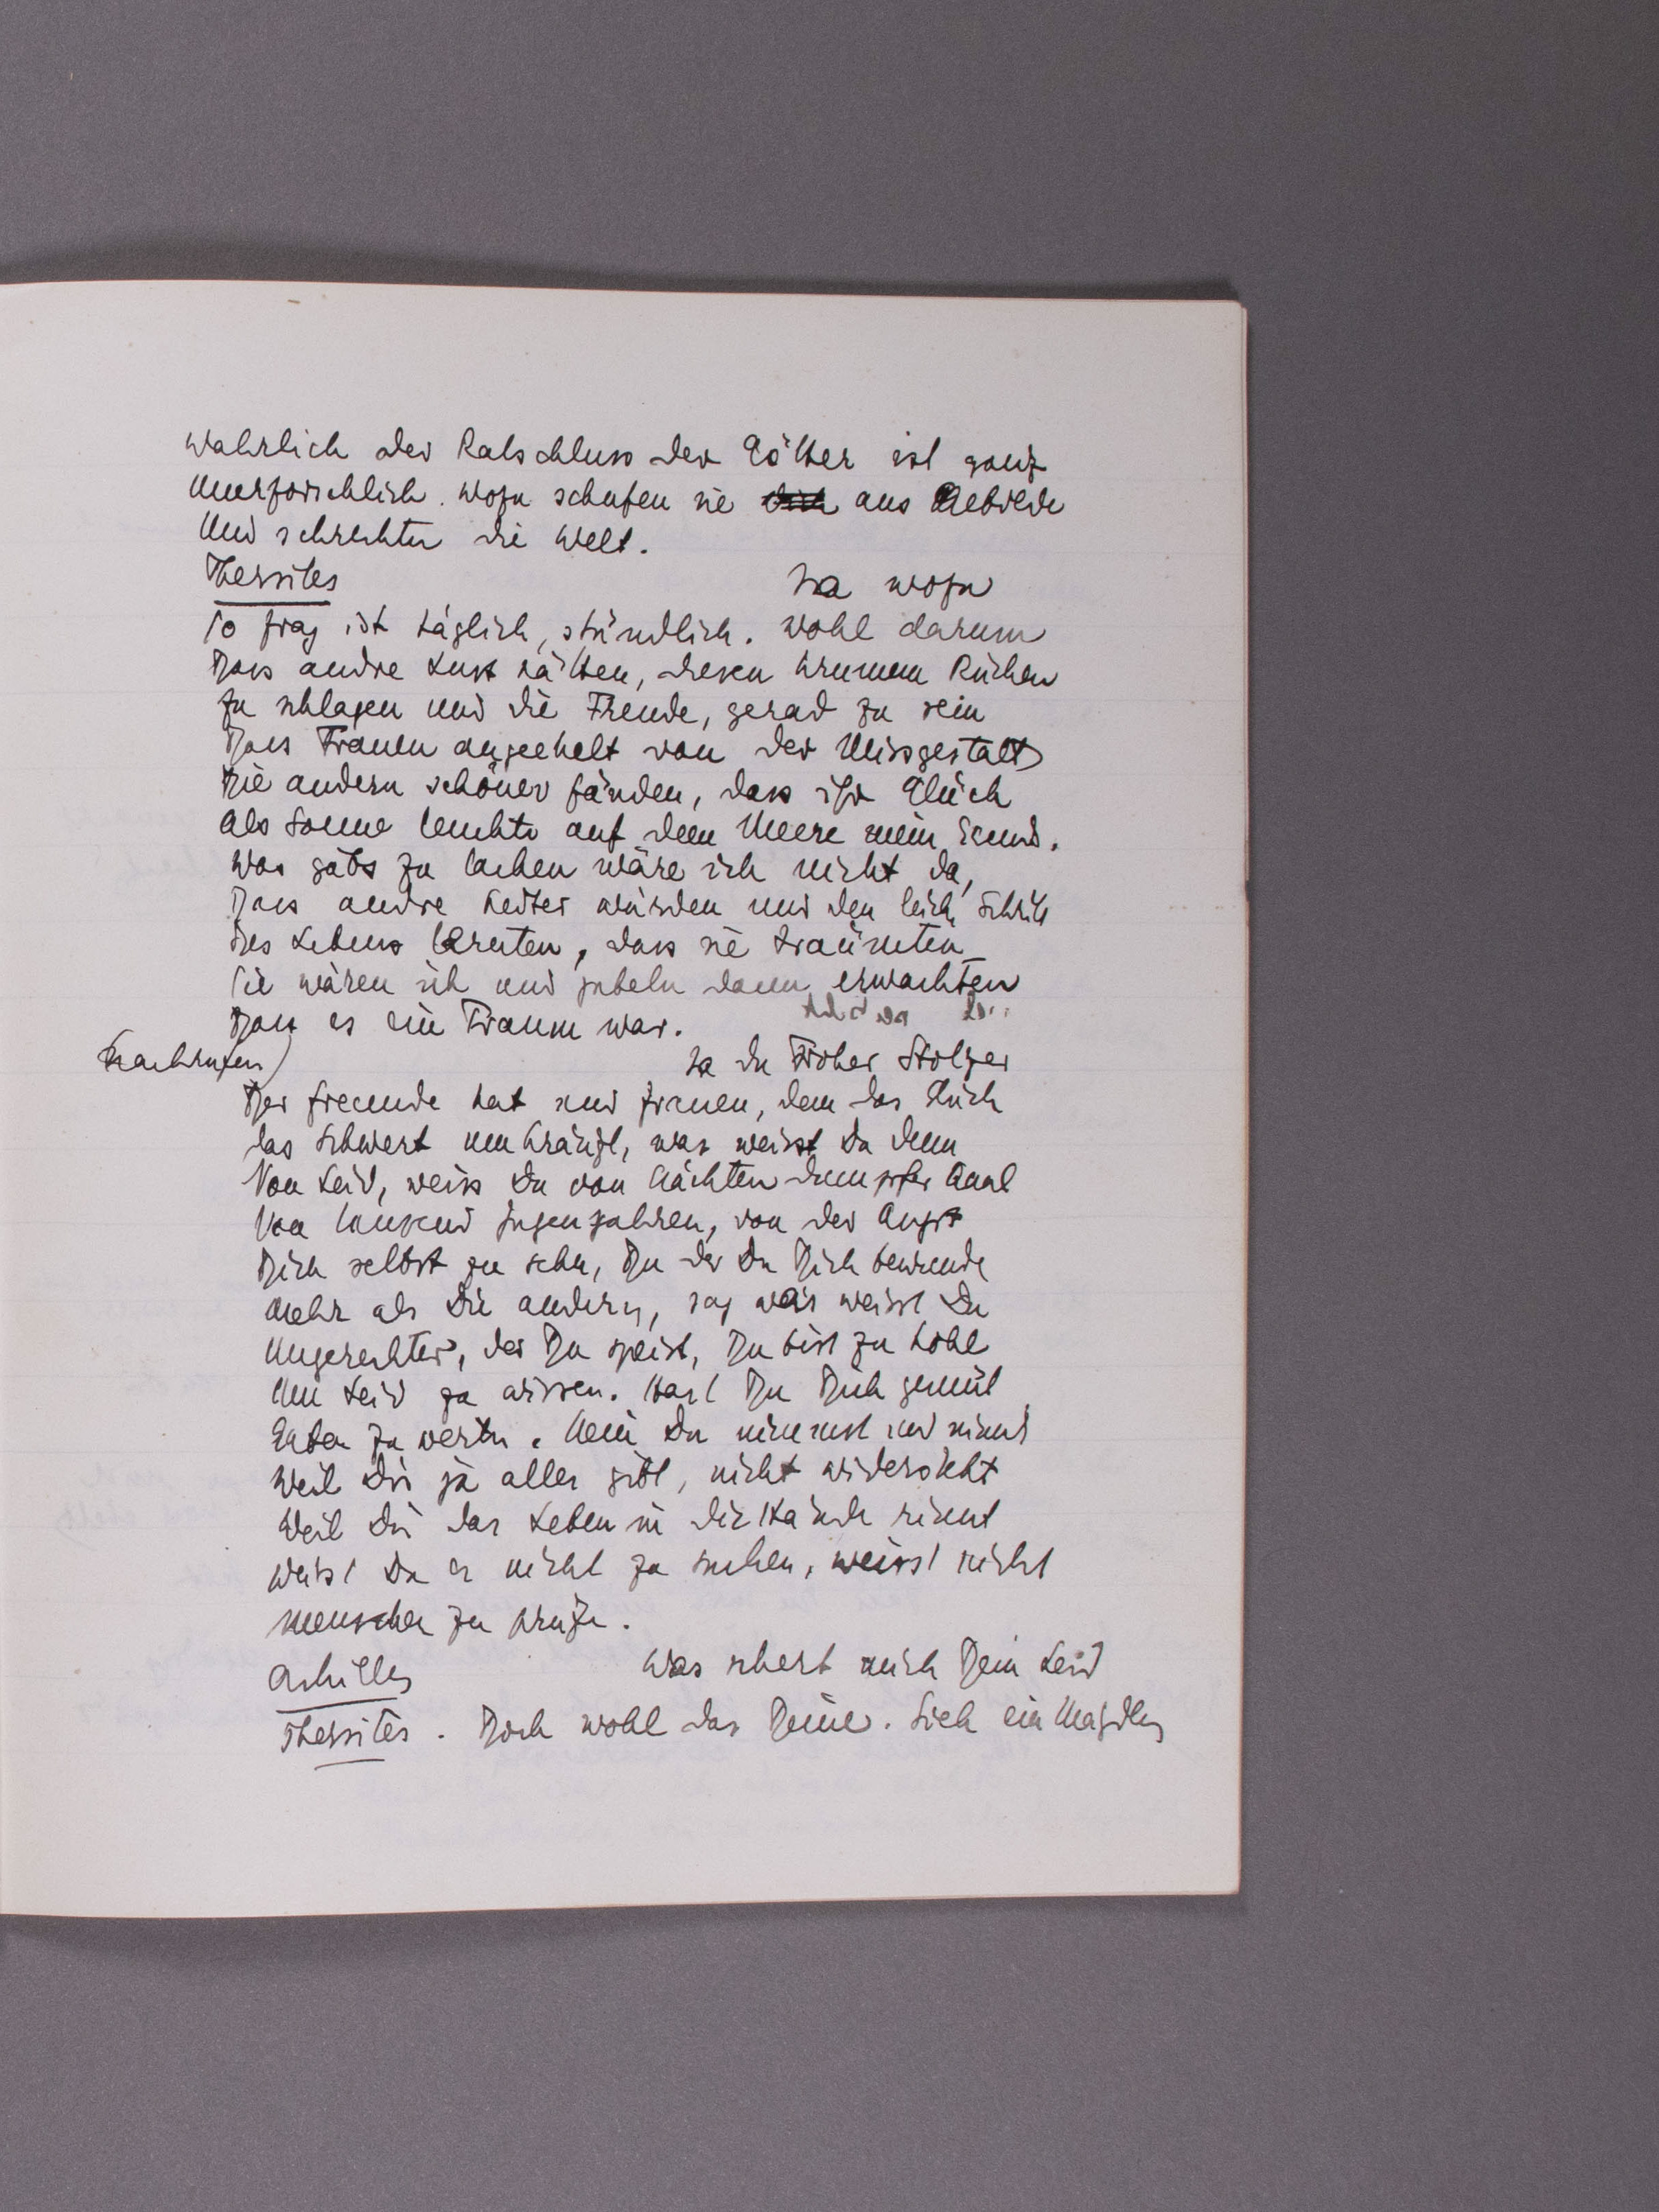 Wahrlich der Ratschluss der Götter ist ganz
Unerforschlich. Wozu schufen sie aus Gebilde
Und schreckten die Welt.
Thersites Ja wozu
So frag ich täglich, stündlich. Wohl darum
Dass andre Lust hätten, diesen krummen Rücken
Zu schlagen und die Freude, gerad zu sein
Dass Frauen angeekelt von der Missgestalt
Die andern schöner fänden, dass ihr Glück
Als Sonne leuchte auf dem Meere mein
Was gäbs zu lachen wäre ich nicht da,
Dass andre würden und den leich Schritt
Des Lebens lernten, dass sie träumten
Sie wären ich und jubeln dann erwachten
Dass es ein Traum war.
(nachrufen) Ja du Stolzer
Der Freunde hat und Frauen, dem das Glück
das Schwert umkränzt, was weisst Du denn
Von Leid, weisst Du von Nächten dumpfer Qual
Von Jugenjahren, von der Angst
Dich selbst zu sehn, Du der Du Dich bewunde
Mehr als die andern, sag was weisst Du
Ungerechter, der Du speist, Du bist zu hohl
Um Leid zu wissen. Hast Du Dich gemüt
zu werden. Nein Du nimmst und nimmst
Weil Dir ja alles gibt, nicht widersteht
Weil Dir das Leben in die Hände rinnt
Weisst Du es nicht zu suchen, weisst nicht
Menschen zu prüfen.
Achilles Was schert mich Dein Leid
Thersites. Doch wohl das Deine. Sieh ein